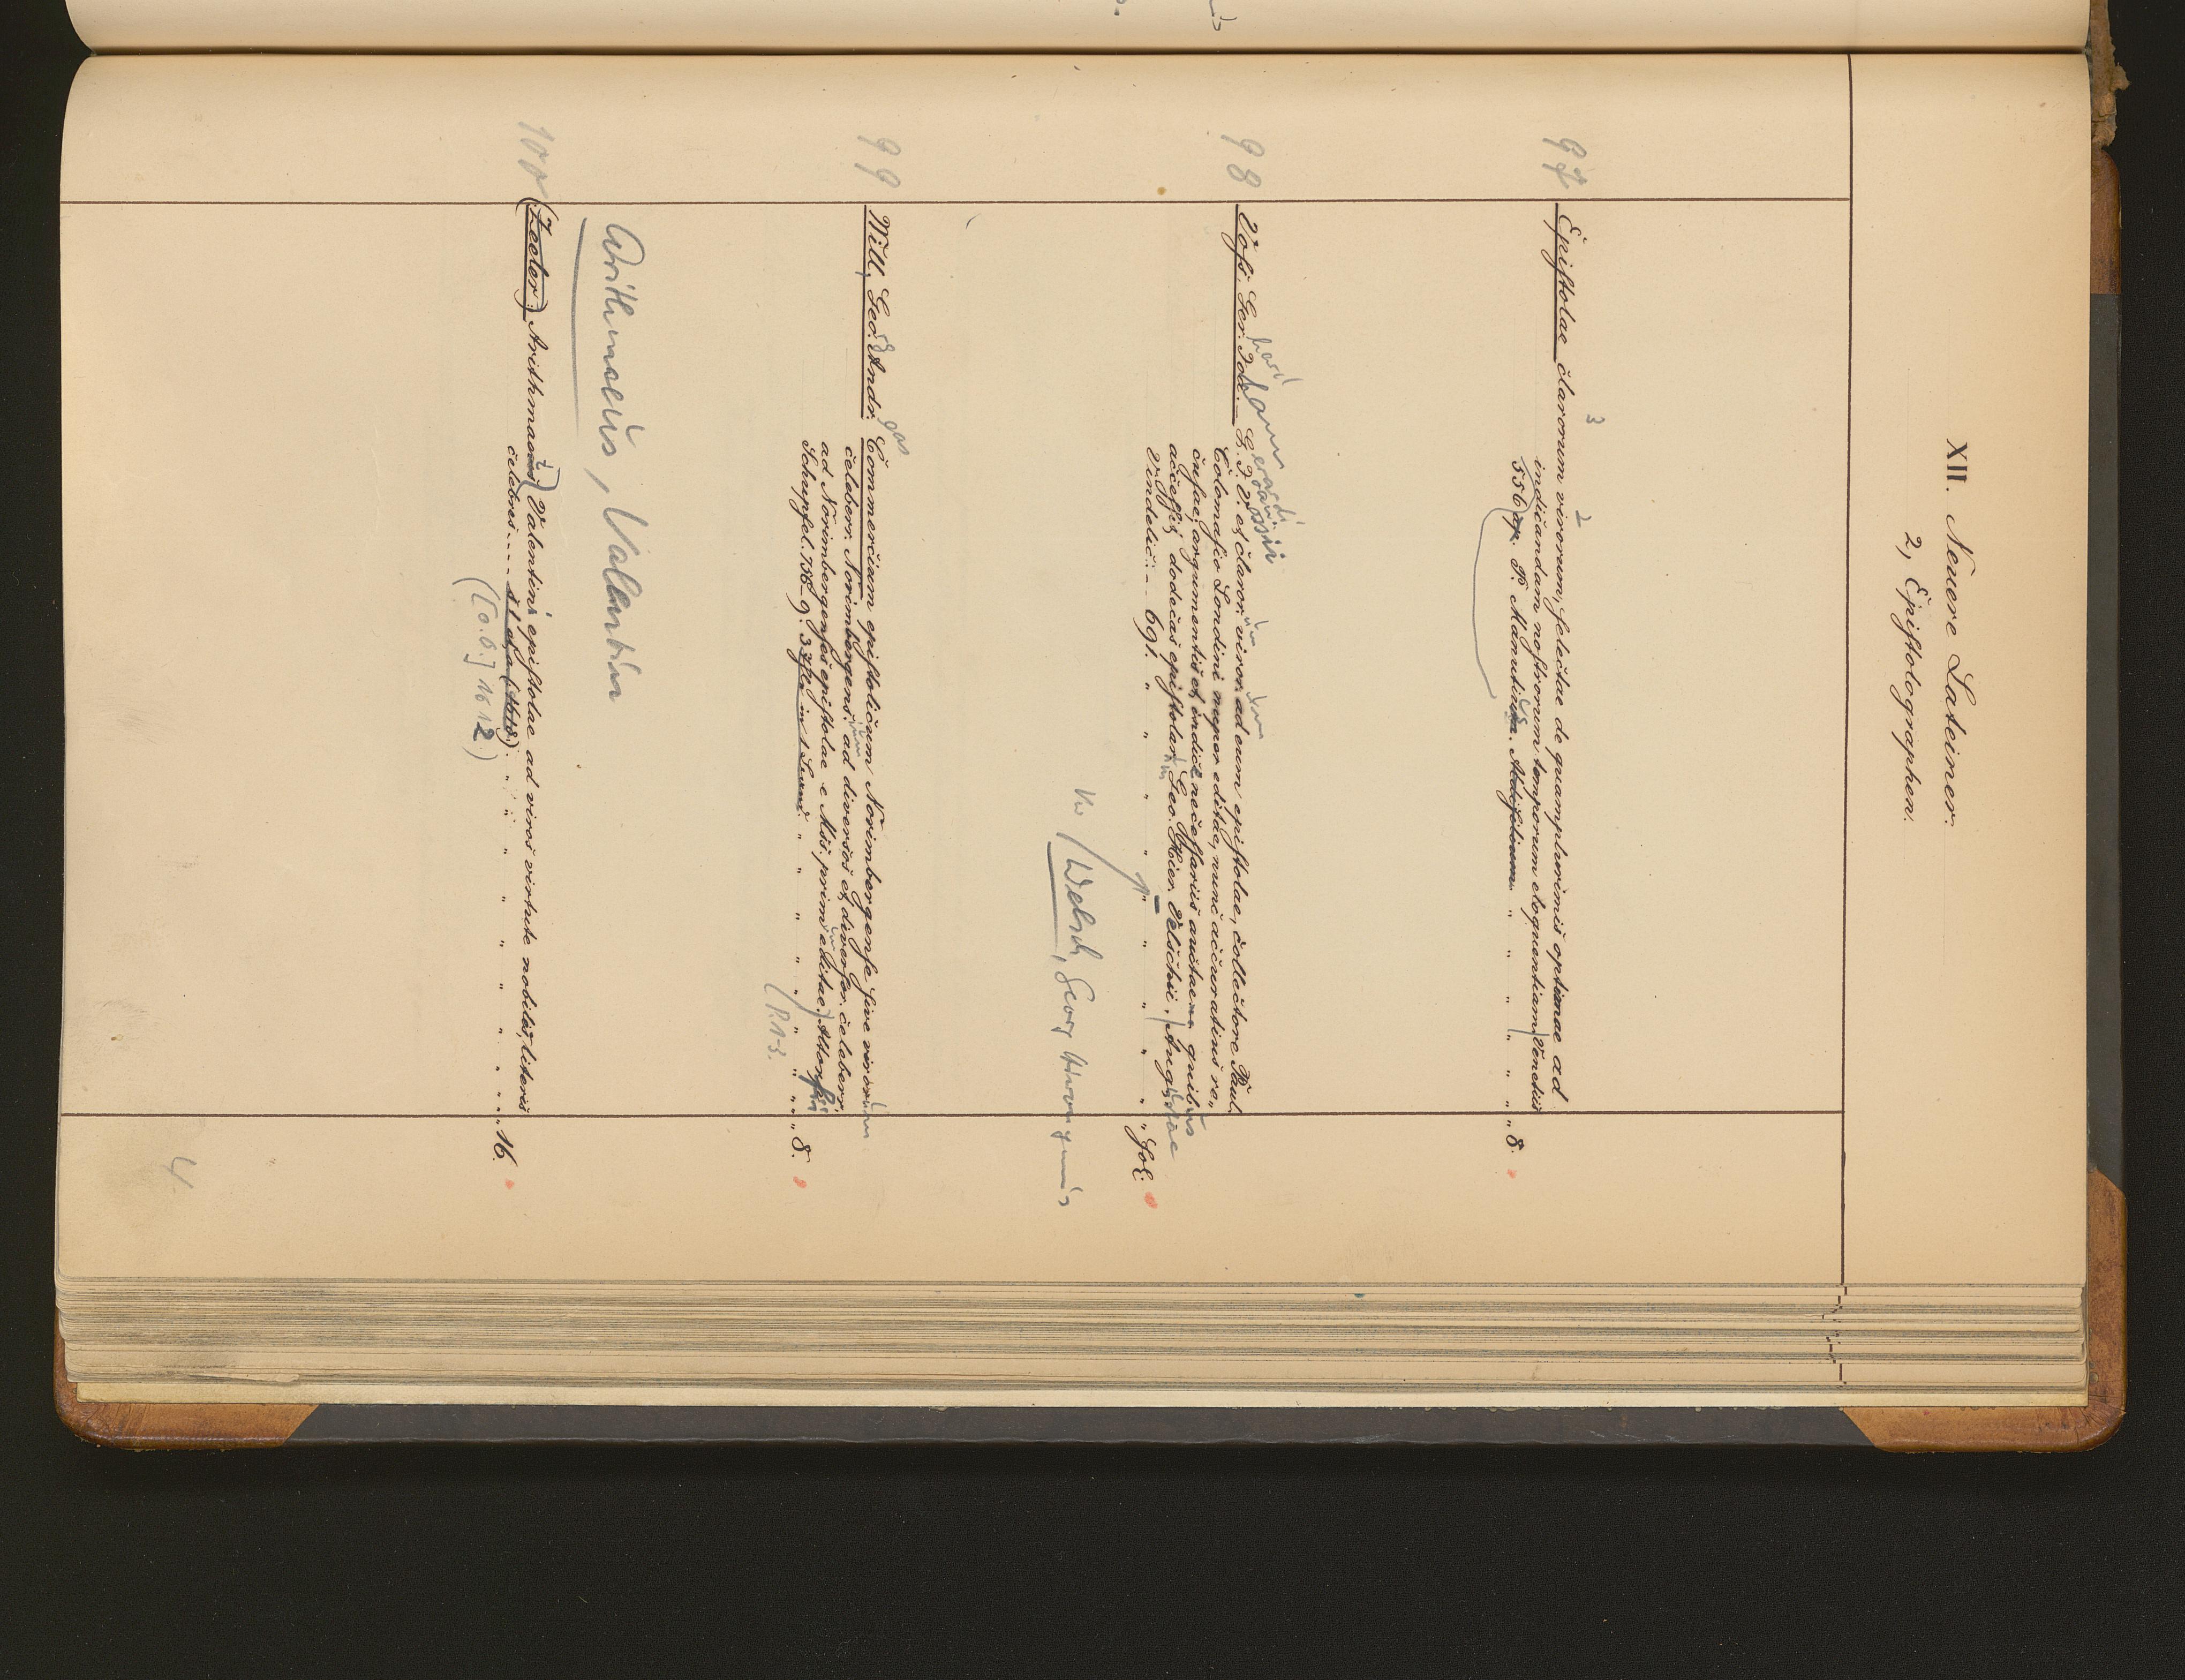 XII. Neuere Lateiner.
2, Epistolographen.
97
3 2
Epistolae clarorum virorum, selectae de quamplurimis optimae ad
indicandam nostrorum temporum eloquentiam. Venetiis
556 ap. P. Manutium. " " " " " " 8.
98
Voss. Ger. Joh. G. J. V. et claror. viror. ad eum epistolae, collectore Paul.
Colomesio Londini nuper editae, nunc accuratius re„
cusae, argumentis et indice necessariis auctae quibus
accessit dodecas epistolar. Geo. Hier. Velschii. Aug.
Vindelic. - 691. " " " " " " " " " fol.
Vw / Welsch, Georg Hieronymus
99
Will, Geo. Andr. Commercium epistolicum Norimbergense sive viror.
celeberr. Norimbergens. ad diversos et diversor. celeberr.
ad Norimbergenses epistolae e Mss. prim. editae. Altorfii
Schupfel. 756-9. 3 Ze in 1 Band. " " " " " " " 8.
(P. 1-3.
Arithmaeus, Valentin
100
(Zeeler.) Arithmaei Valentini epistolae ad viros virtute nobiles, literis
celebres... s. l. et a. (1612.) " " " " " " " " " 16.
([o.O.] 1612)
4.